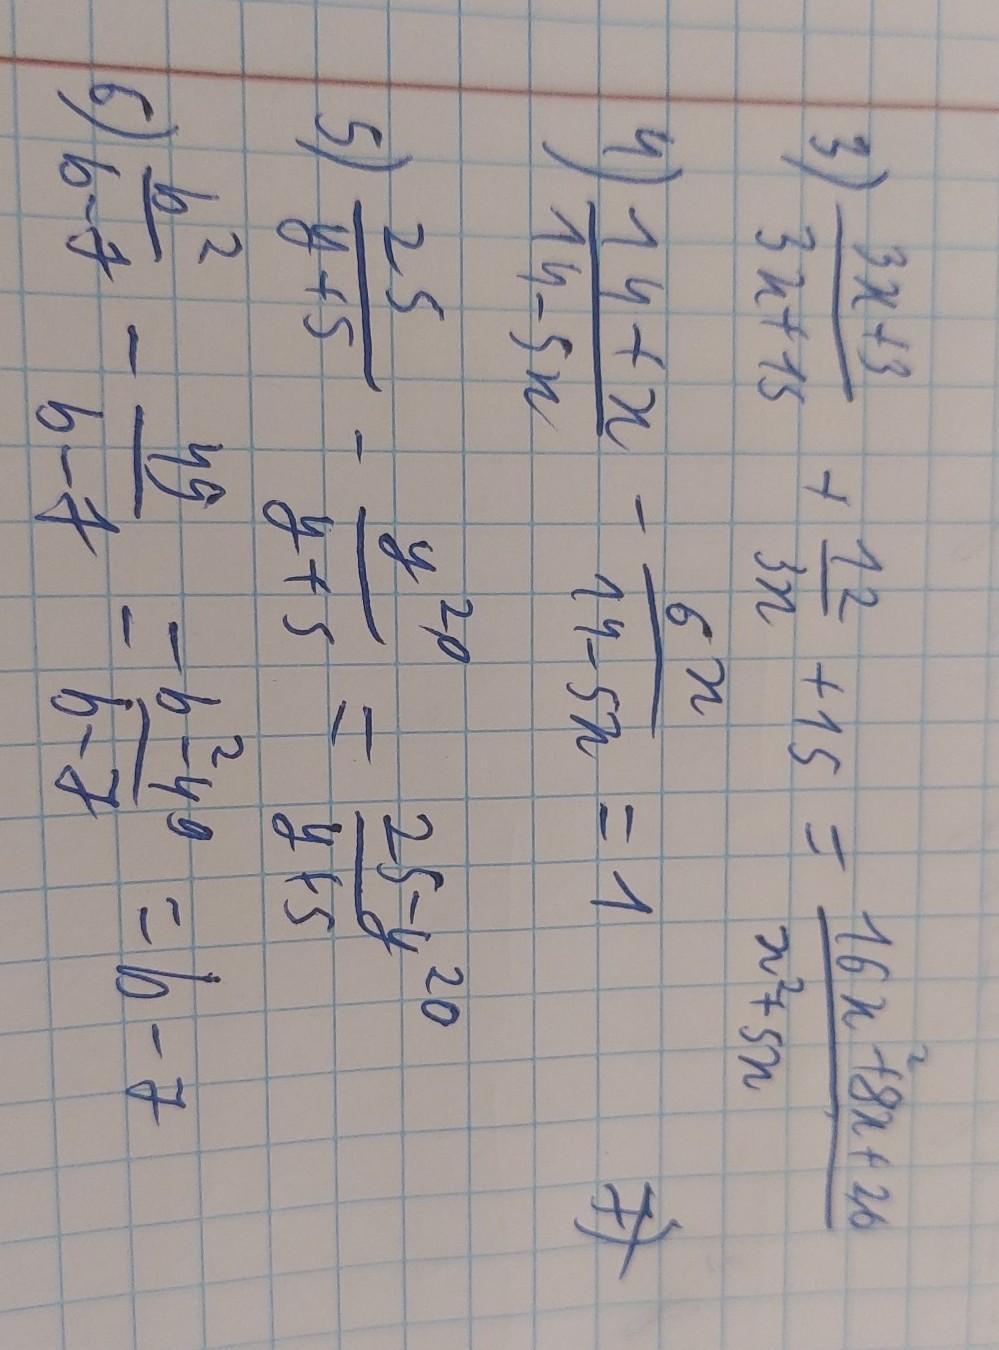 3) (3x+3)/(3x+15) + 12/3x + 15 = (16x²+8x+20)/(x²+5x)
4) (14+x)/(14-5x) - 6x/(14-5x) = 1
5) 25/(y+5) - y²⁰/(y+5) = (25-y²⁰)/(y+5)
6) b²/(b-7) - 49/(b-7) = - (b²-49)/(b-7) = b-7
7)